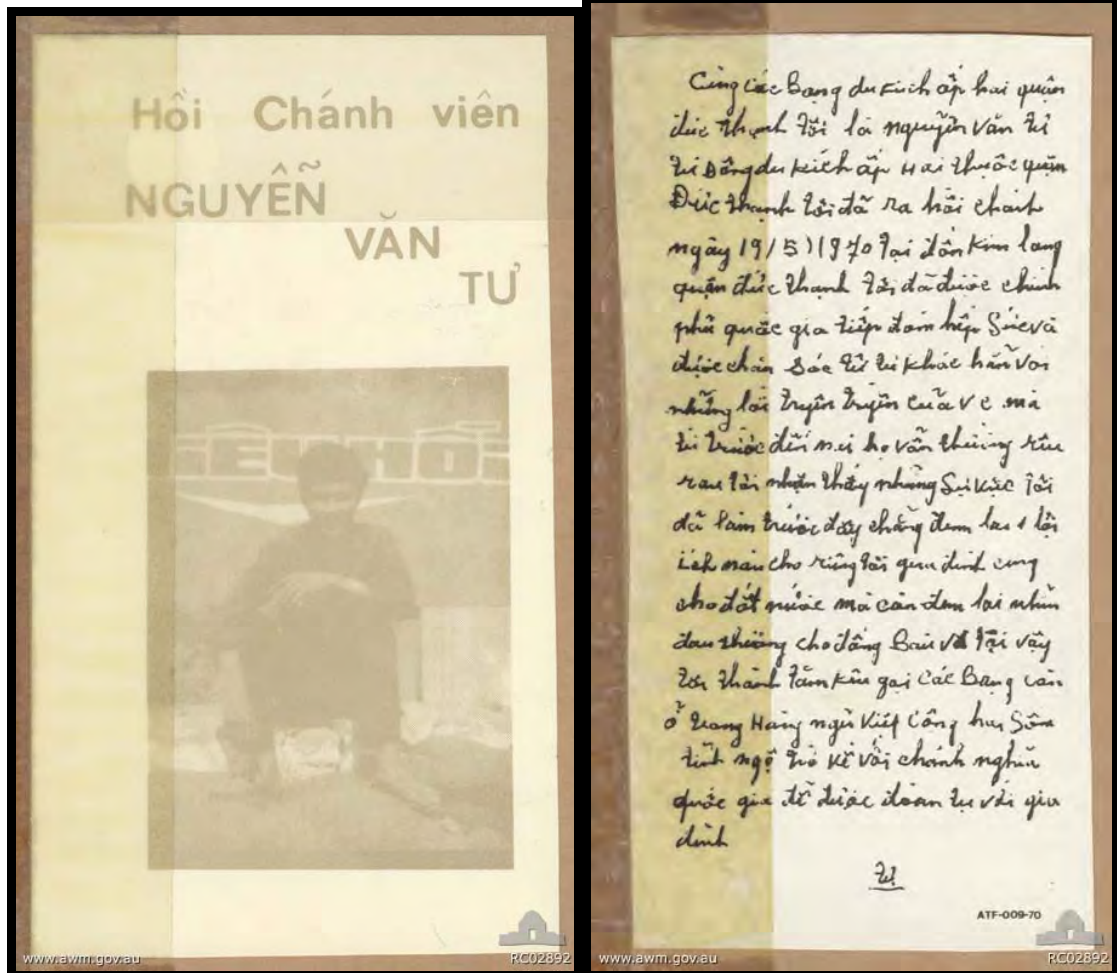 Hồi Chánh viên
NGUYỄN
VĂN
TƯ
ÊU HỒI
www.awm.gov.au
RC02892
Cùng các bạng du kích ấp hai quận
đức thạnh tôi là nguyễn văn tư
từ Đông du kích ấp Hai thuộc quận
Đức thạnh tôi đã ra hồi chánh
ngày 19/5/1970 tại đồn Kim long
quận đức thạnh tôi đã được chính
phủ quốc gia tiếp đón hết sức và
được chăn sóc tử tế khác hẳn với
những lời tryên tryền của v c mà
từ trước đến nai họ vẫn thường rêu
rau tôi nhận thấy những sự việc tôi
đã làm trước đây chẳng đem lại lợi
ích nào cho riêng tôi gia đình cũng
cho đất nước mà còn đem lại nhìn
đau thương cho đồng bàu vì tại vậy
tôi thành tâm kêu gọi các bạng còn
ở trong Hàng ngũ Việt Công hai sớm
tỉnh ngộ trở về với chánh nghĩa
quốc gia để được đoàn tụ với gia
đình
Tư
ATF-009-70
www.awm.gov.au
RC02892